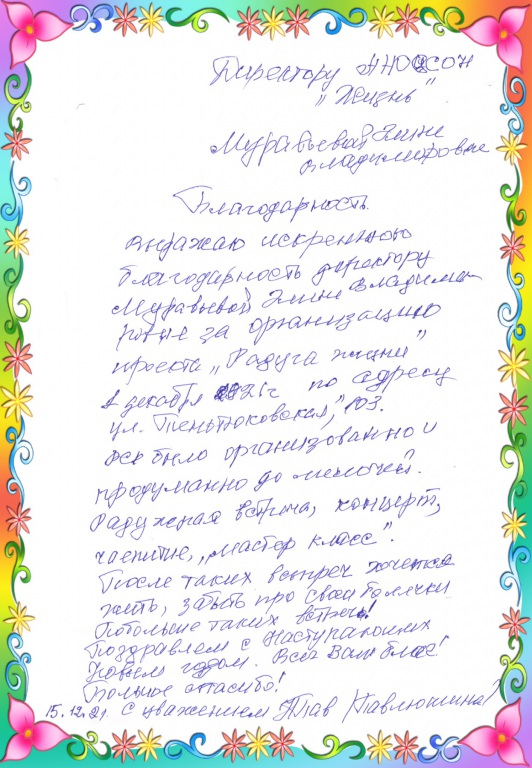 Директору АНО ЦСОН
„Жизнь"
Муравьевой Элине
Владимировне
Благодарность.
Выражаю искреннюю
благодарность директору
Муравьевой Элине Владими-
ровне за организацию
проекта „Радуга жизни"
декабря 2021г по адресу
ул. Теньтюковская, 103.
Все было организованно и
продуманно до мелочей.
Радужная встреча, концерт,
чаепитие, „мастер класс".
После таких встреч хочется
жить, забыть про свои болячки
Побольше таких встреч!
Поздравлем с наступающих
Новым годом. Всех Вам благ!
Большое спасибо!
15.12.21. С уважением Павлюшина